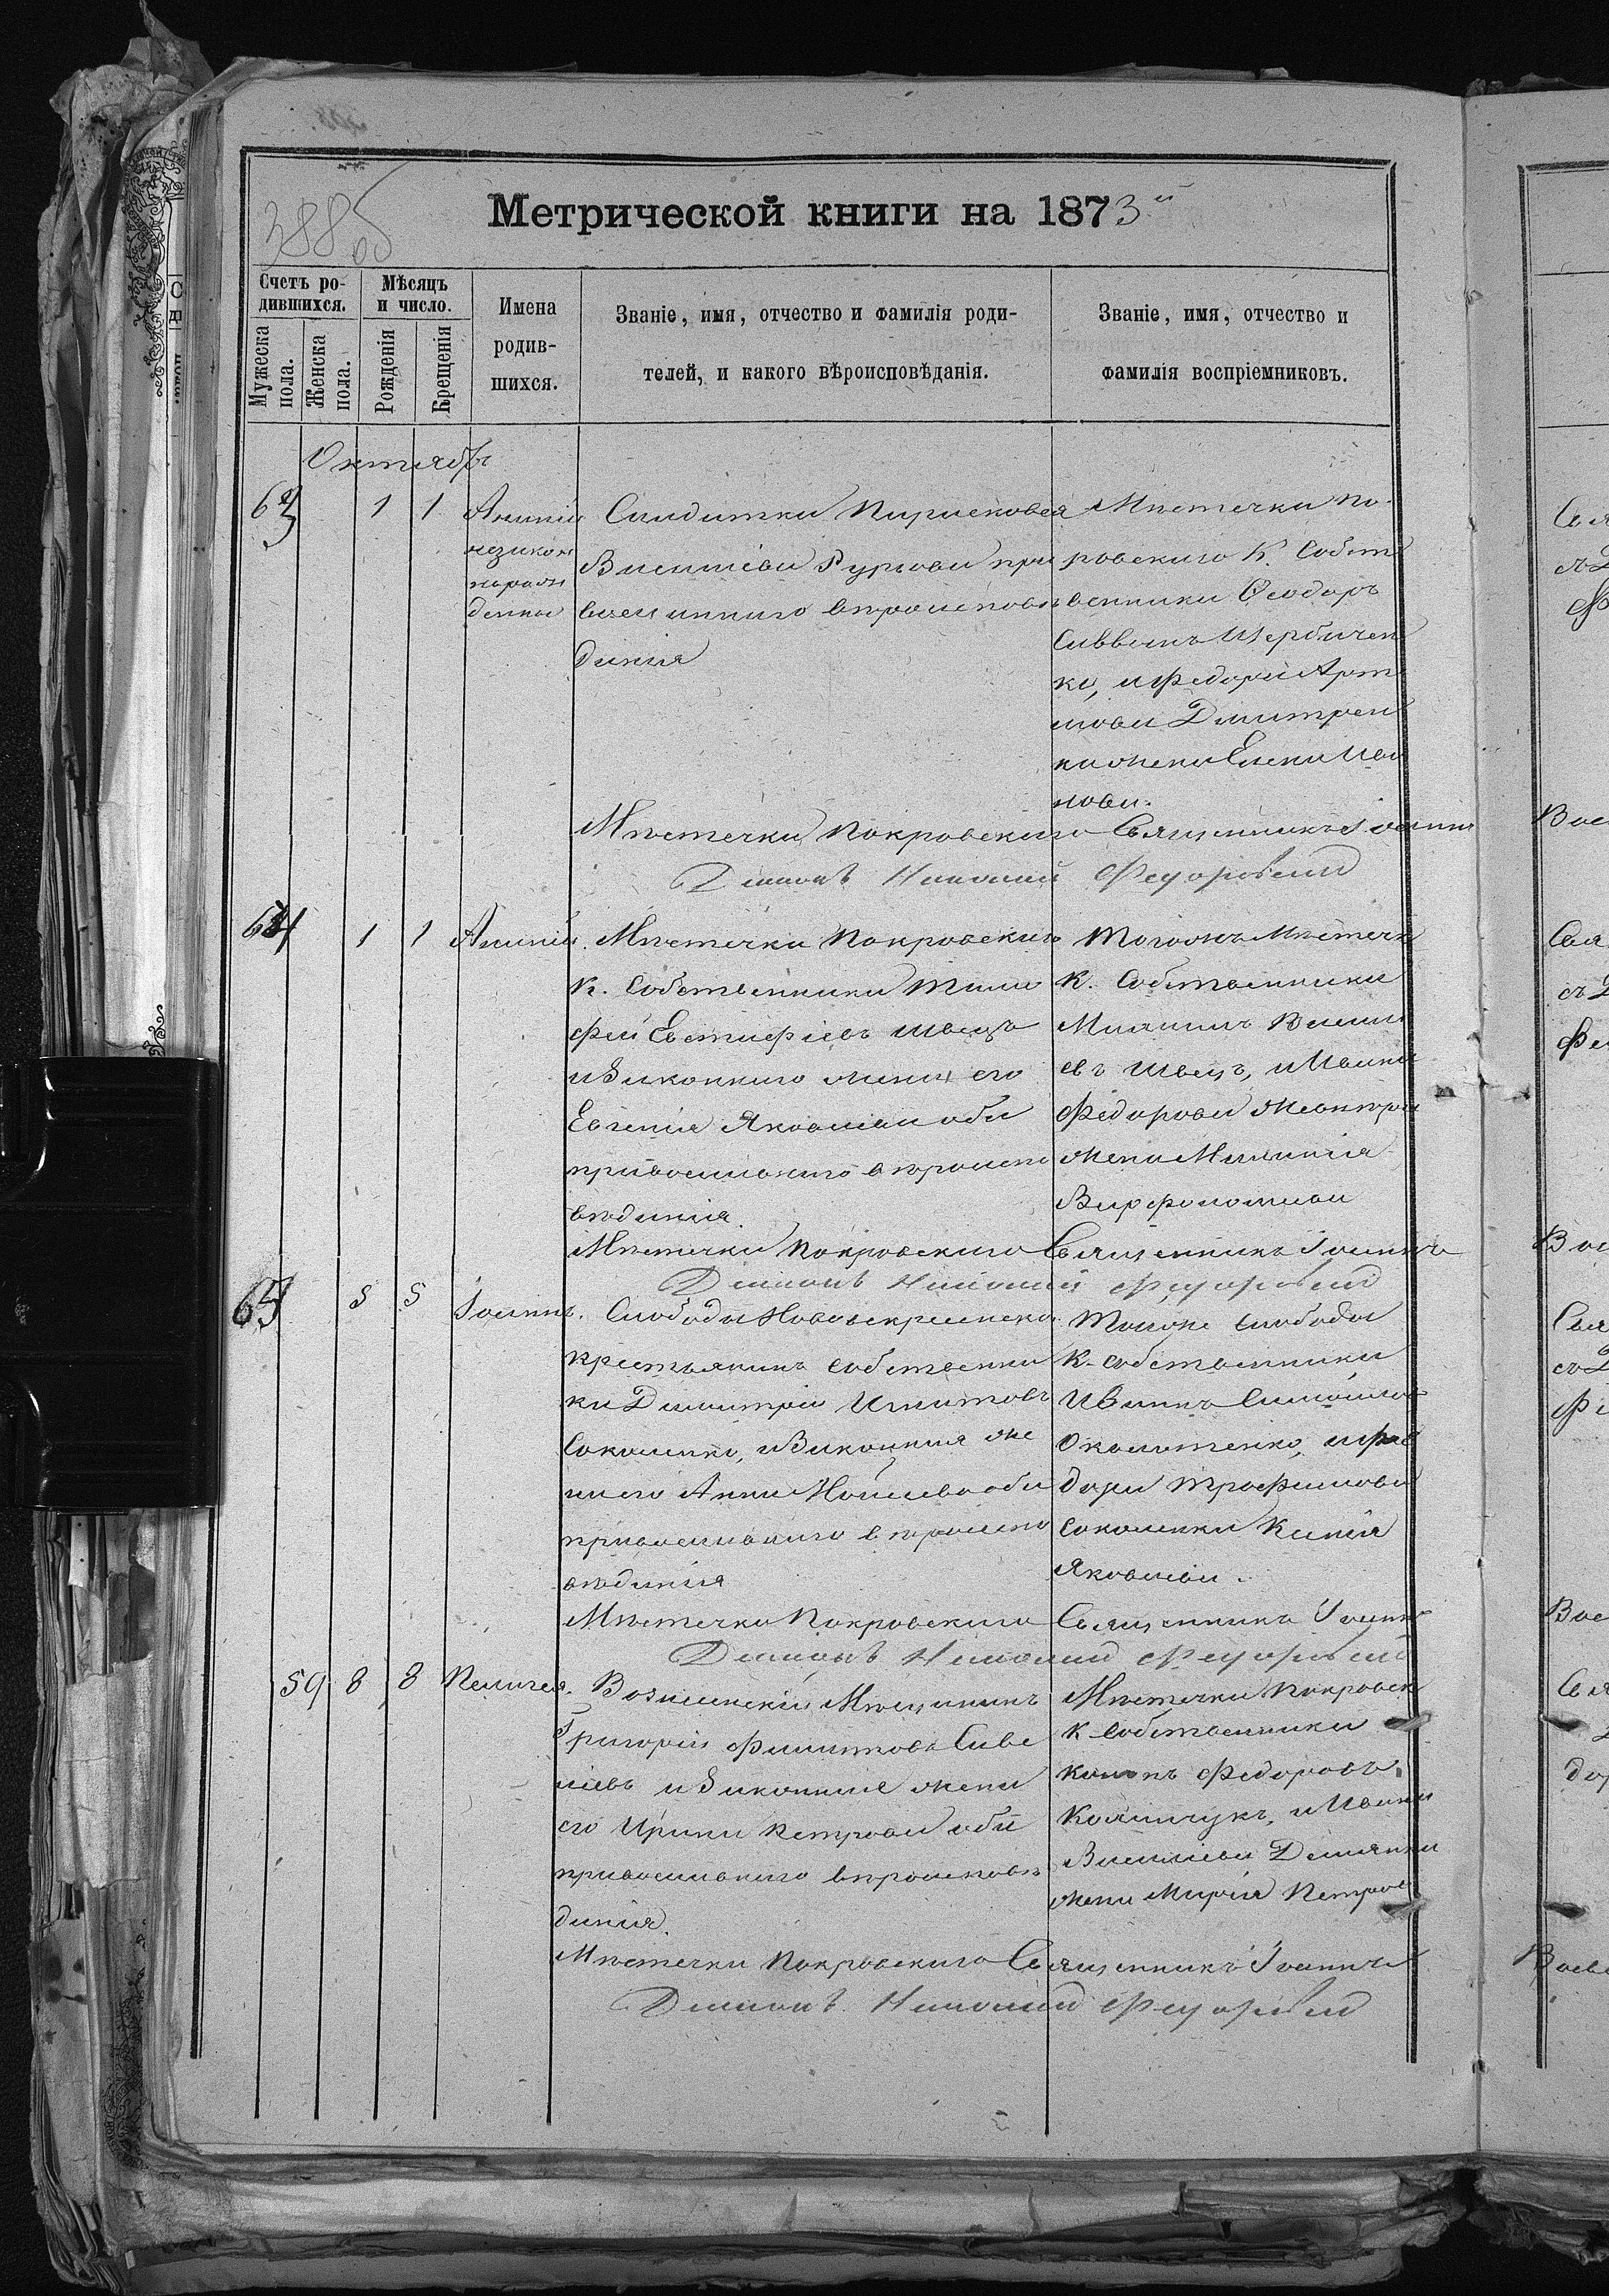 3885
Метрической книги на 1873й
Счетъ ро-
дившихся.
Мужеска
пола.
Женска
пола.
Мѣсяцъ
и число.
Рожденія
Крещенія
Имена
родив-
шихся.
Званіе, имя, отчество и фамилія роди-
телей, и какого вѣроисповѣданія.
Званіе, имя, отчество и
фамилія воспріемниковъ.
Октябрь
63 1 1 Ананій
незакон
нарож
денны
Солдатки
вѣроисповѣ
данія
Мѣстечка По-
кровскаго К. Собст
венники Ѳеодоръ
Саввинъ Щербачен
ко, и Федоры Арт
мова Дмитрен
ки жена Елена Ива
нова.
Мѣстечка Покровскаго Священникъ Іоаннъ
Дьяконъ Николай Федоровскій
64 1 1 Ананій. Мѣстечка Покровскаго
К. Собственника Тимо
фей Евстафіевъ Швецъ
и законнаго жены его
Евгенія Яковлева оба
православнаго вѣроиспо
вѣданія.
Тогожъ Мѣстечк
К. Собственники
Швецъ, и Ивана
Федорова
жена Меланія
Варфоломиева
Мѣстечка Покровскаго Священникъ Іоаннъ
Дьяконъ Николай Федоровскій
65 5 5 Іоаннъ. Слободы Нововскресенска
крестьянинъ собственни
ки Димитрій Игнатовъ
Соколенко, и законная же
на его Анна Моисеева оба
православнаго вѣроиспо
вѣданія
Тойже слободы
К. собственники
Иванъ Самойлов
Околотенко, и Фео
дора Трофимова
Соколенки Ксенія
Яковлева.
Мѣстечка Покровскаго Священникъ Іоаннъ
Дьяконъ Николай Федоровскій
59 8 8 Пелагея. Вознесенскій Мѣщанинъ
Григорій Филиповъ Саве
ліевъ и законная жена
его Ирина Петрова оба
православнаго вѣроисповѣ
данія.
Мѣстечка Покровск
К. Собственники
Федоровъ
и Ивана
Василіева Демянки
жена Марія Петров
Мѣстечка Покровскаго Священникъ Іоаннъ
Дьяконъ Николай Федоровскій